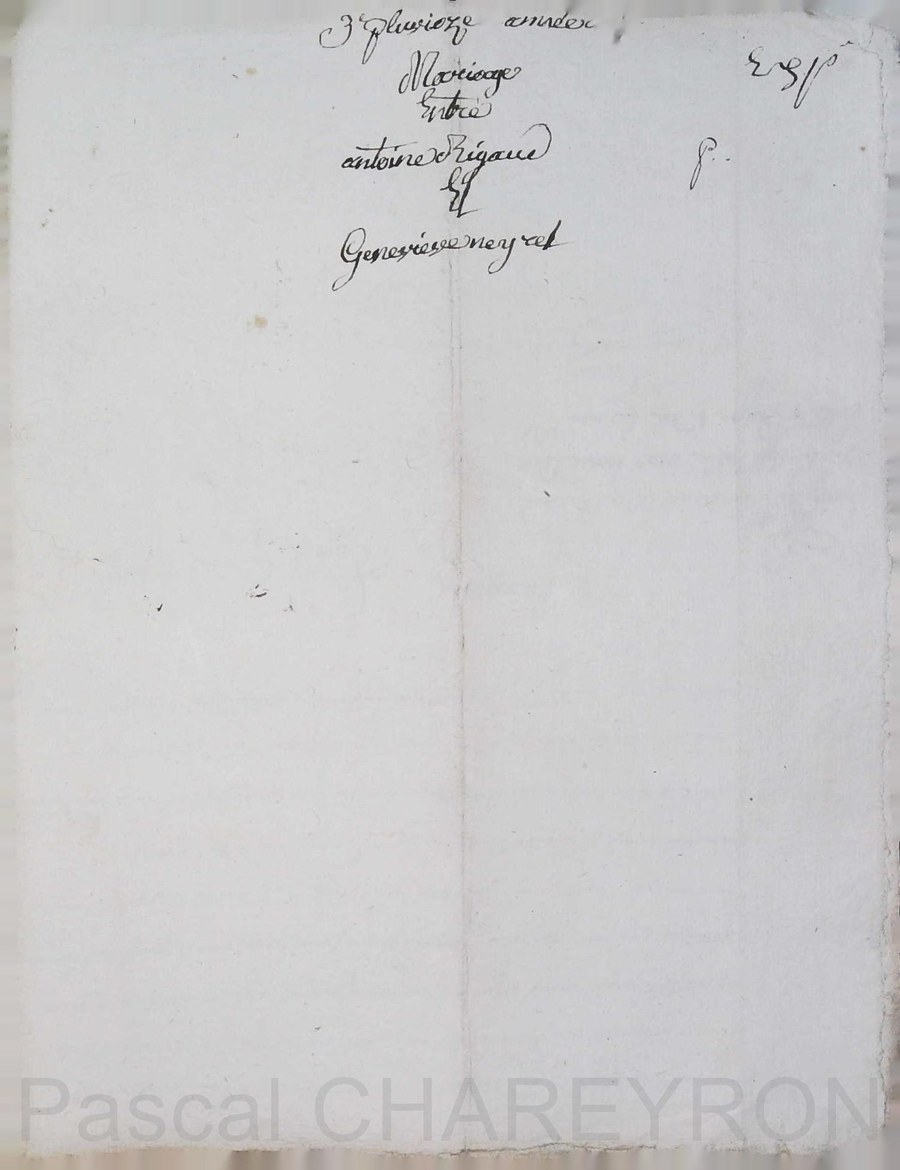 3e pluvioze année
Mariage
Entre
antoine Rigaud
Et
Genevieve neyret
Exp
p.
Pascal CHAREYRON